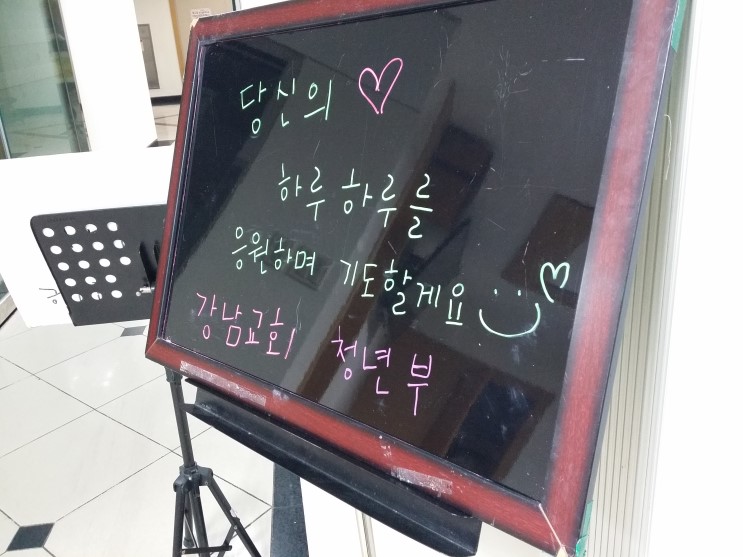 당신의 ♡
하루 하루를
응원하며 기도할게요
강남교회 청년부